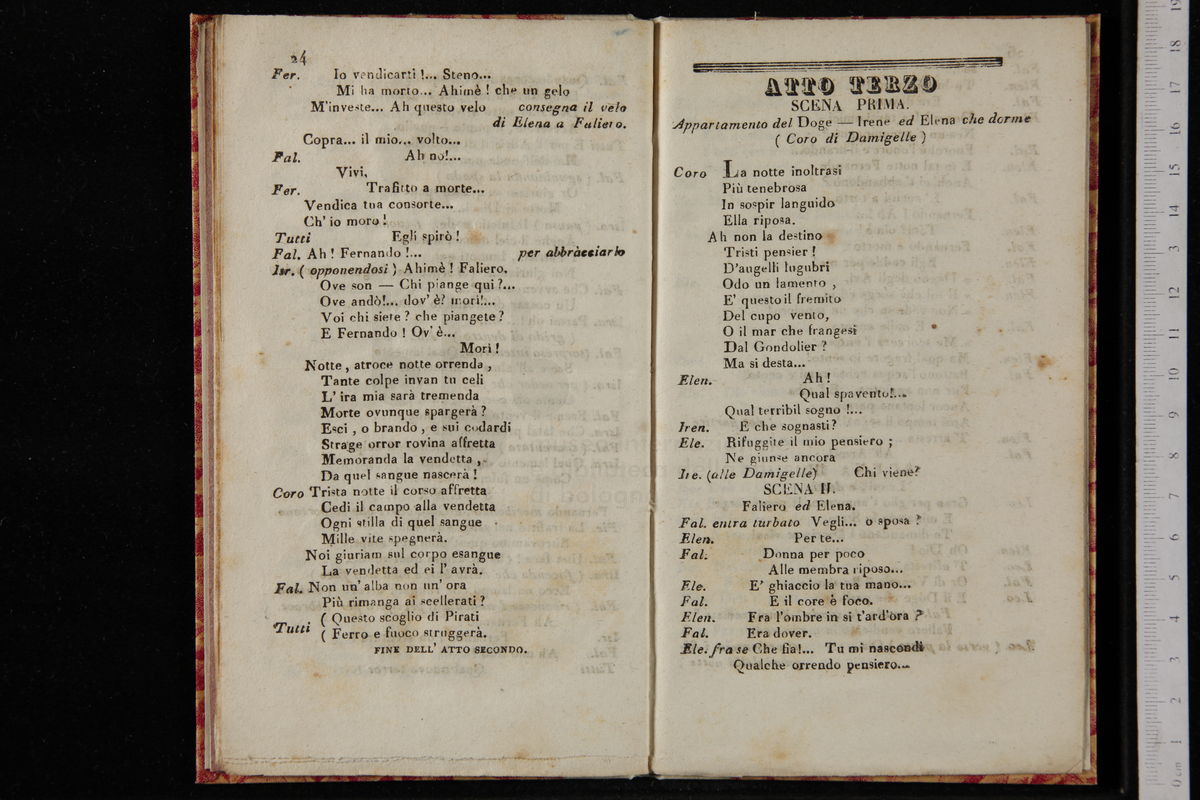 24
Fer. Io vendicarti !... Steno...
Mi ha morto... Ahimè ! che un gelo
M'investe... Ah questo velo consegna il velo
di Elena a Faliero.
Copra... il mio... volto...
Fal. Ah no!...
Vivi,
Fer. Trafitto a morte...
Vendica tua consorte...
Ch' io moro !
Tutti Egli spirò !
Fal. Ah ! Fernando !... per abbracciarlo
Isr. ( opponendosi ) Ahimè ! Faliero.
Ove son — Chi piange qui ?...
Ove andò!... dov' è? morì!...
Voi chi siete ? che piangete ?
E Fernando ! Ov' è...
Morì !
Notte , atroce notte orrenda ,
Tante colpe invan tu celi
L' ira mia sarà tremenda
Morte ovunque spargerà ?
Esci , o brando , e sui codardi
Strage orror rovina affretta
Memoranda la vendetta ,
Da quel sangue nascerà !
Coro Trista notte il corso affretta
Cedi il campo alla vendetta
Ogni stilla di quel sangue
Mille vite spegnerà.
Noi giuriam sul corpo esangue
La vendetta ed ei l' avrà.
Fal. Non un' alba non un' ora
Più rimanga ai scellerati ?
Tutti ( Questo scoglio di Pirati
( Ferro e fuoco struggerà.
FINE DELL' ATTO SECONDO.
ATTO TERZO
SCENA PRIMA.
Appartamento del Doge — Irene ed Elena che dorme
( Coro di Damigelle )
Coro La notte inoltrasi
Più tenebrosa
In sospir languido
Ella riposa.
Ah non la destino
Tristi pensier !
D'augelli lugubri
Odo un lamento ,
E' questo il fremito
Del cupo vento,
O il mar che frangesi
Dal Gondolier ?
Ma si desta...
Elen. Ah !
Qual spavento!...
Qual terribil sogno !...
Iren. E che sognasti ?
Ele. Rifuggite il mio pensiero ;
Ne giunse ancora
Ire. (alle Damigelle) Chi viene?
SCENA II.
Faliero ed Elena.
Fal. entra turbato Vegli... o sposa ?
Elen. Per te...
Fal. Donna per poco
Alle membra riposo...
Ele. E' ghiaccio la tua mano...
Fal. E il core è foco.
Elen. Fra l'ombre in sì t'ard'ora ?
Fal. Era dover.
Ele. fra se Che fia!... Tu mi nascondi
Qualche orrendo pensiero...